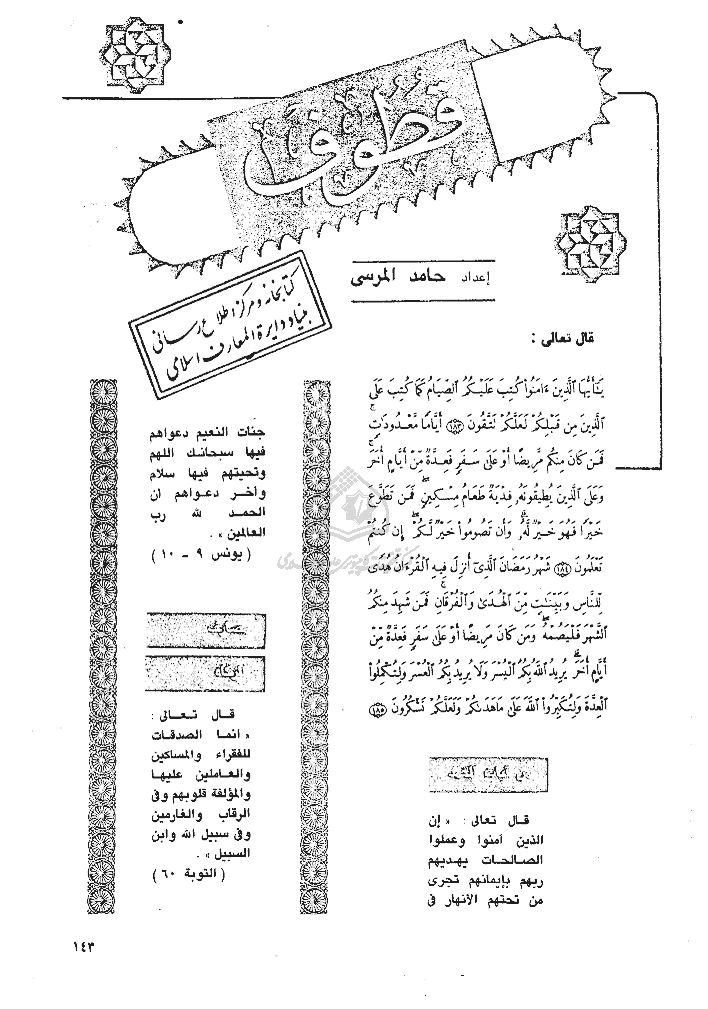 قطوف
إعداد حامد المرسى
كتابخانه و مركز اطلاع رسانى
بنياد دايرة المعارف اسلامى
قال تعالى :
يَٰٓأَيُّهَا الَّذِينَ ءَامَنُوا۟ كُتِبَ عَلَيْكُمُ الصِّيَامُ كَمَا كُتِبَ عَلَى
الَّذِينَ مِن قَبْلِكُمْ لَعَلَّكُمْ تَتَّقُونَ ﴿١٨٣﴾ أَيَّامًا مَّعْدُودَٰتٍ
فَمَن كَانَ مِنكُم مَّرِيضًا أَوْ عَلَىٰ سَفَرٍ فَعِدَّةٌ مِّنْ أَيَّامٍ أُخَرَ
وَعَلَى الَّذِينَ يُطِيقُونَهُۥ فِدْيَةٌ طَعَامُ مِسْكِينٍ فَمَن تَطَوَّعَ
خَيْرًا فَهُوَ خَيْرٌ لَّهُۥ وَأَن تَصُومُوا۟ خَيْرٌ لَّكُمْ إِن كُنتُمْ
تَعْلَمُونَ ﴿١٨٤﴾ شَهْرُ رَمَضَانَ الَّذِىٓ أُنزِلَ فِيهِ الْقُرْءَانُ هُدًى
لِّلنَّاسِ وَبَيِّنَٰتٍ مِّنَ الْهُدَىٰ وَالْفُرْقَانِ فَمَن شَهِدَ مِنكُمُ
الشَّهْرَ فَلْيَصُمْهُ وَمَن كَانَ مَرِيضًا أَوْ عَلَىٰ سَفَرٍ فَعِدَّةٌ مِّنْ
أَيَّامٍ أُخَرَ يُرِيدُ اللَّهُ بِكُمُ الْيُسْرَ وَلَا يُرِيدُ بِكُمُ الْعُسْرَ وَلِتُكْمِلُوا۟
الْعِدَّةَ وَلِتُكَبِّرُوا۟ اللَّهَ عَلَىٰ مَا هَدَىٰكُمْ وَلَعَلَّكُمْ تَشْكُرُونَ ﴿١٨٥﴾
قال تعالى : « إن
الذين آمنوا وعملوا
الصالحات يهديهم
ربهم بإيمانهم تجرى
من تحتهم الأنهار فى
جنات النعيم دعواهم
فيها سبحانك اللهم
وتحيتهم فيها سلام
وآخر دعواهم ان
الحمد لله رب
العالمين » .
( يونس ٩ - ١٠ )
قال تعالى :
« انما الصدقات
للفقراء والمساكين
والعاملين عليها
والمؤلفة قلوبهم وفى
الرقاب والغارمين
وفى سبيل الله وابن
السبيل » .
( التوبة ٦٠ )
١٤٣